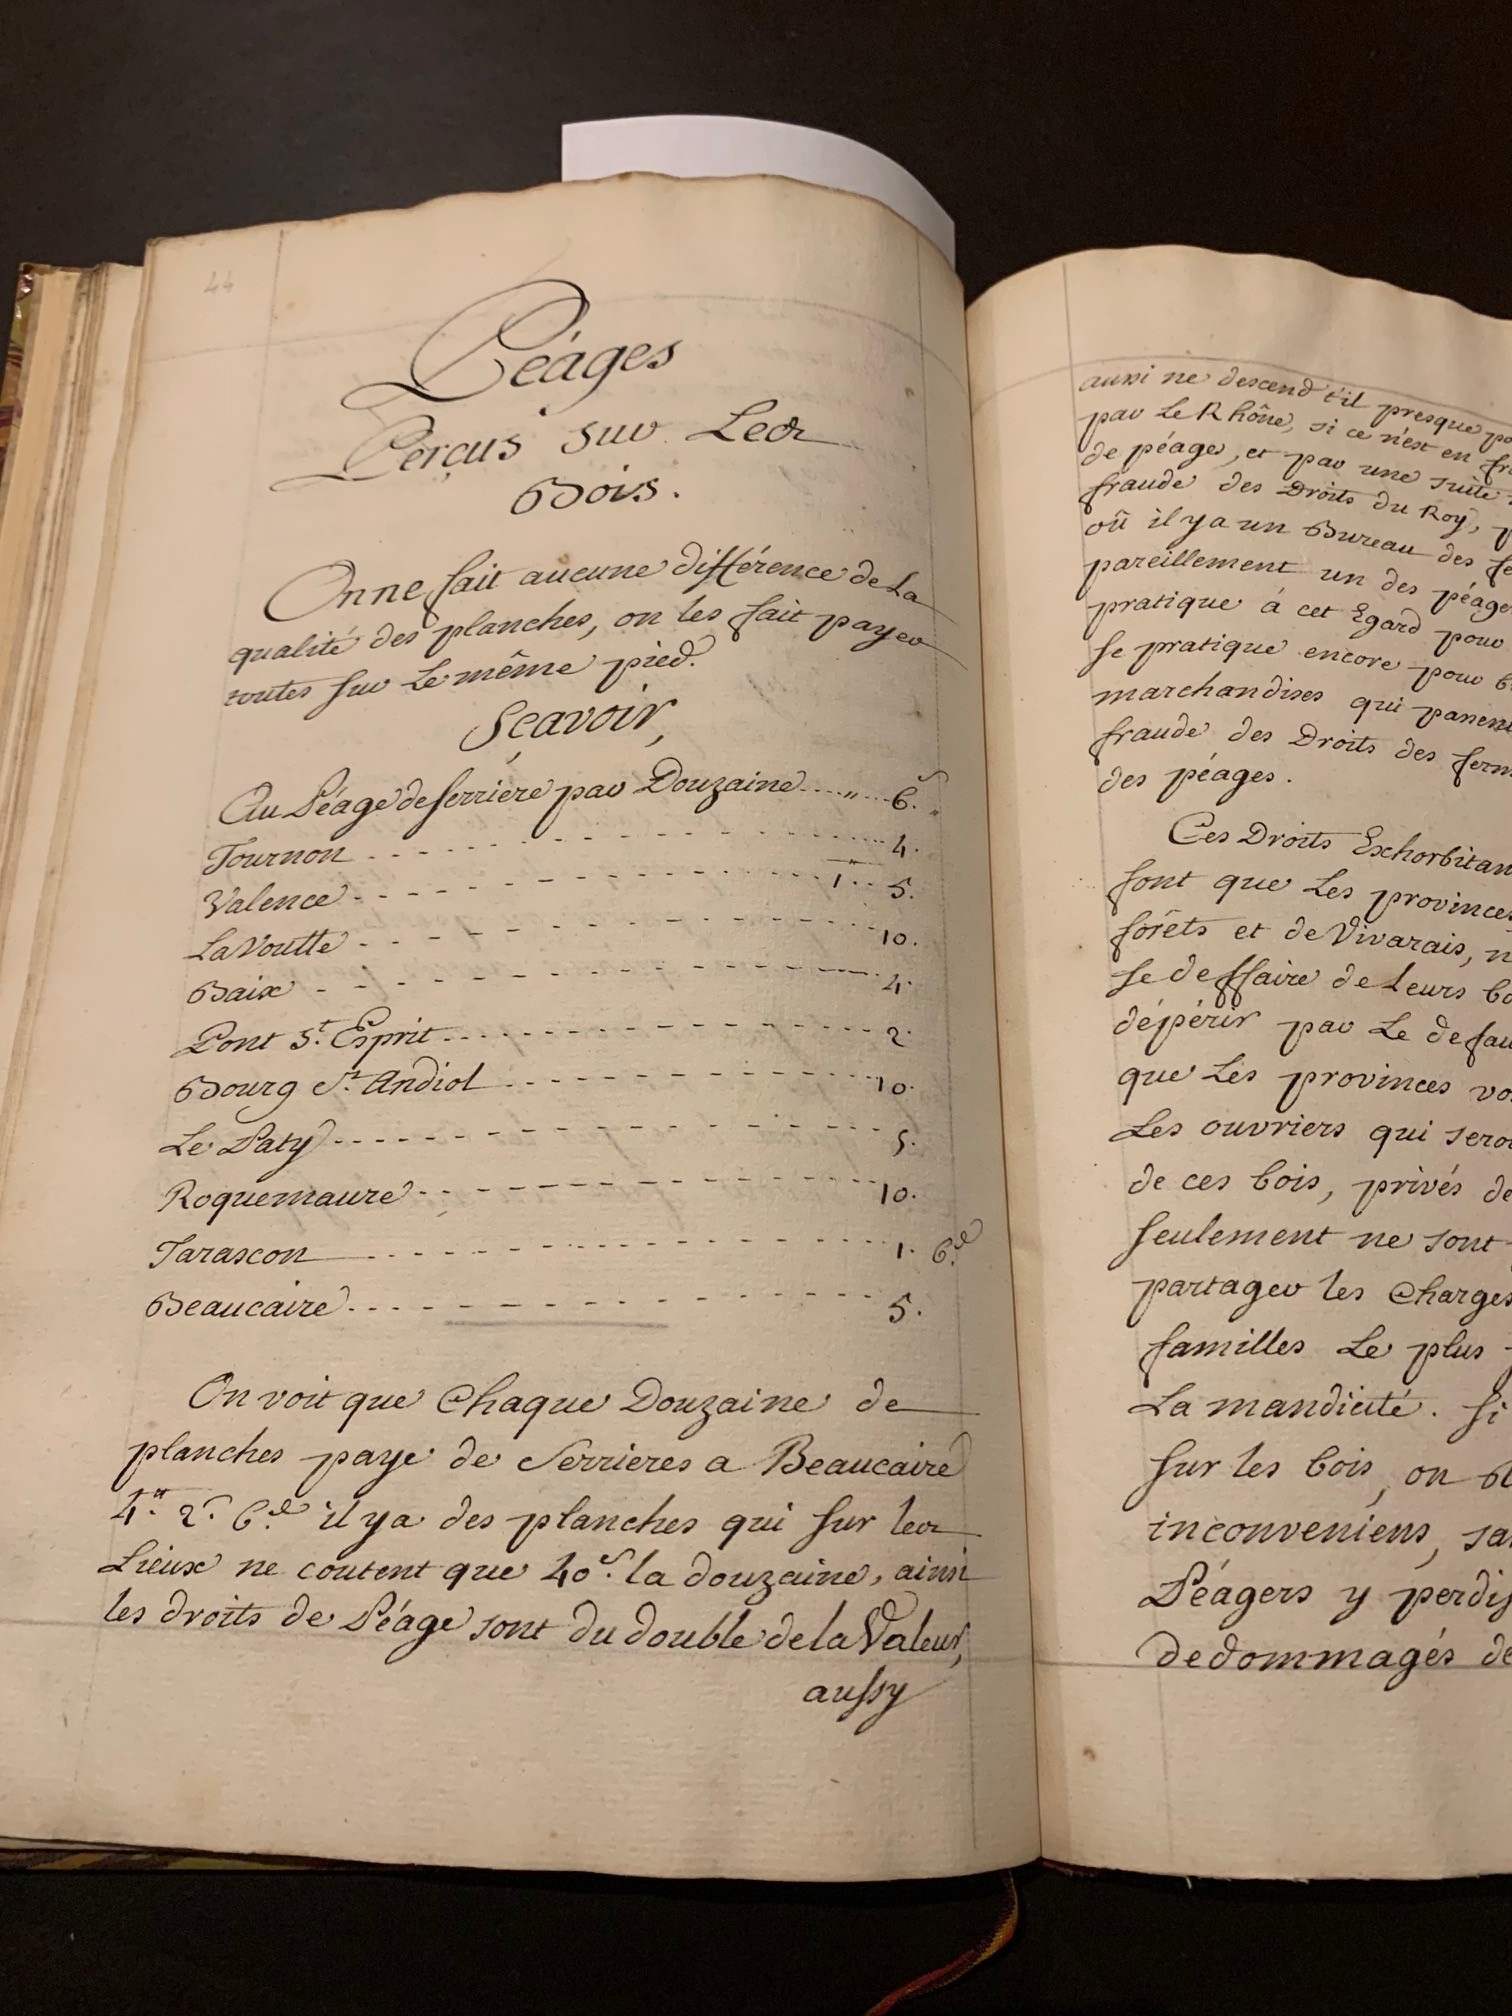 44
Péages
Perçus sur Les
Bois.
On ne fait aucune différence de La
qualité des planches, on les fait payer
toutes sur Le même pied.
Sçavoir,
Au Péage de Serriere par Douzaine .... " ... 6. s
Tournon - - - - - 4.
Valence - - - - - 1.tt .. 5.
La Voulte - - - - - 10.
Baix - - - - - 4.
Pont St. Esprit - - - - - 2.
Bourg St. Andiol - - - - - 10.
Le Paty - - - - - 5.
Roquemaure - - - - - 10.
Tarascon - - - - - 1. 6.d
Beaucaire - - - - - 5.
On voit que Chaque Douzaine de
planches paye de Serrieres a Beaucaire
4.tt 2.s 6.d il y a des planches qui sur les
Lieux ne coutent que 40.s la douzaine, ainsi
les droits de Péage sont du double de la Valeur,
aussy
aussi ne descend t'il presque
par Le Rhône, si ce n'est en
de péages, et par une suite
fraude des Droits du Roy,
oû il y a un Bureau des
pareillement un des
pratique á cet Egard pour
se pratique encore pour
marchandises qui
fraude des Droits des
des péages.
Ces Droits
font que Les
forêts et de Vivarais,
se deffaire de Leurs
dépérir par Le
que Les provinces
Les ouvriers qui
de ces bois, privés
seulement ne sont
partager les
familles Le plus
La mandicité. Si
sur les bois, on
inconveniens,
Péagers y
dedommagés